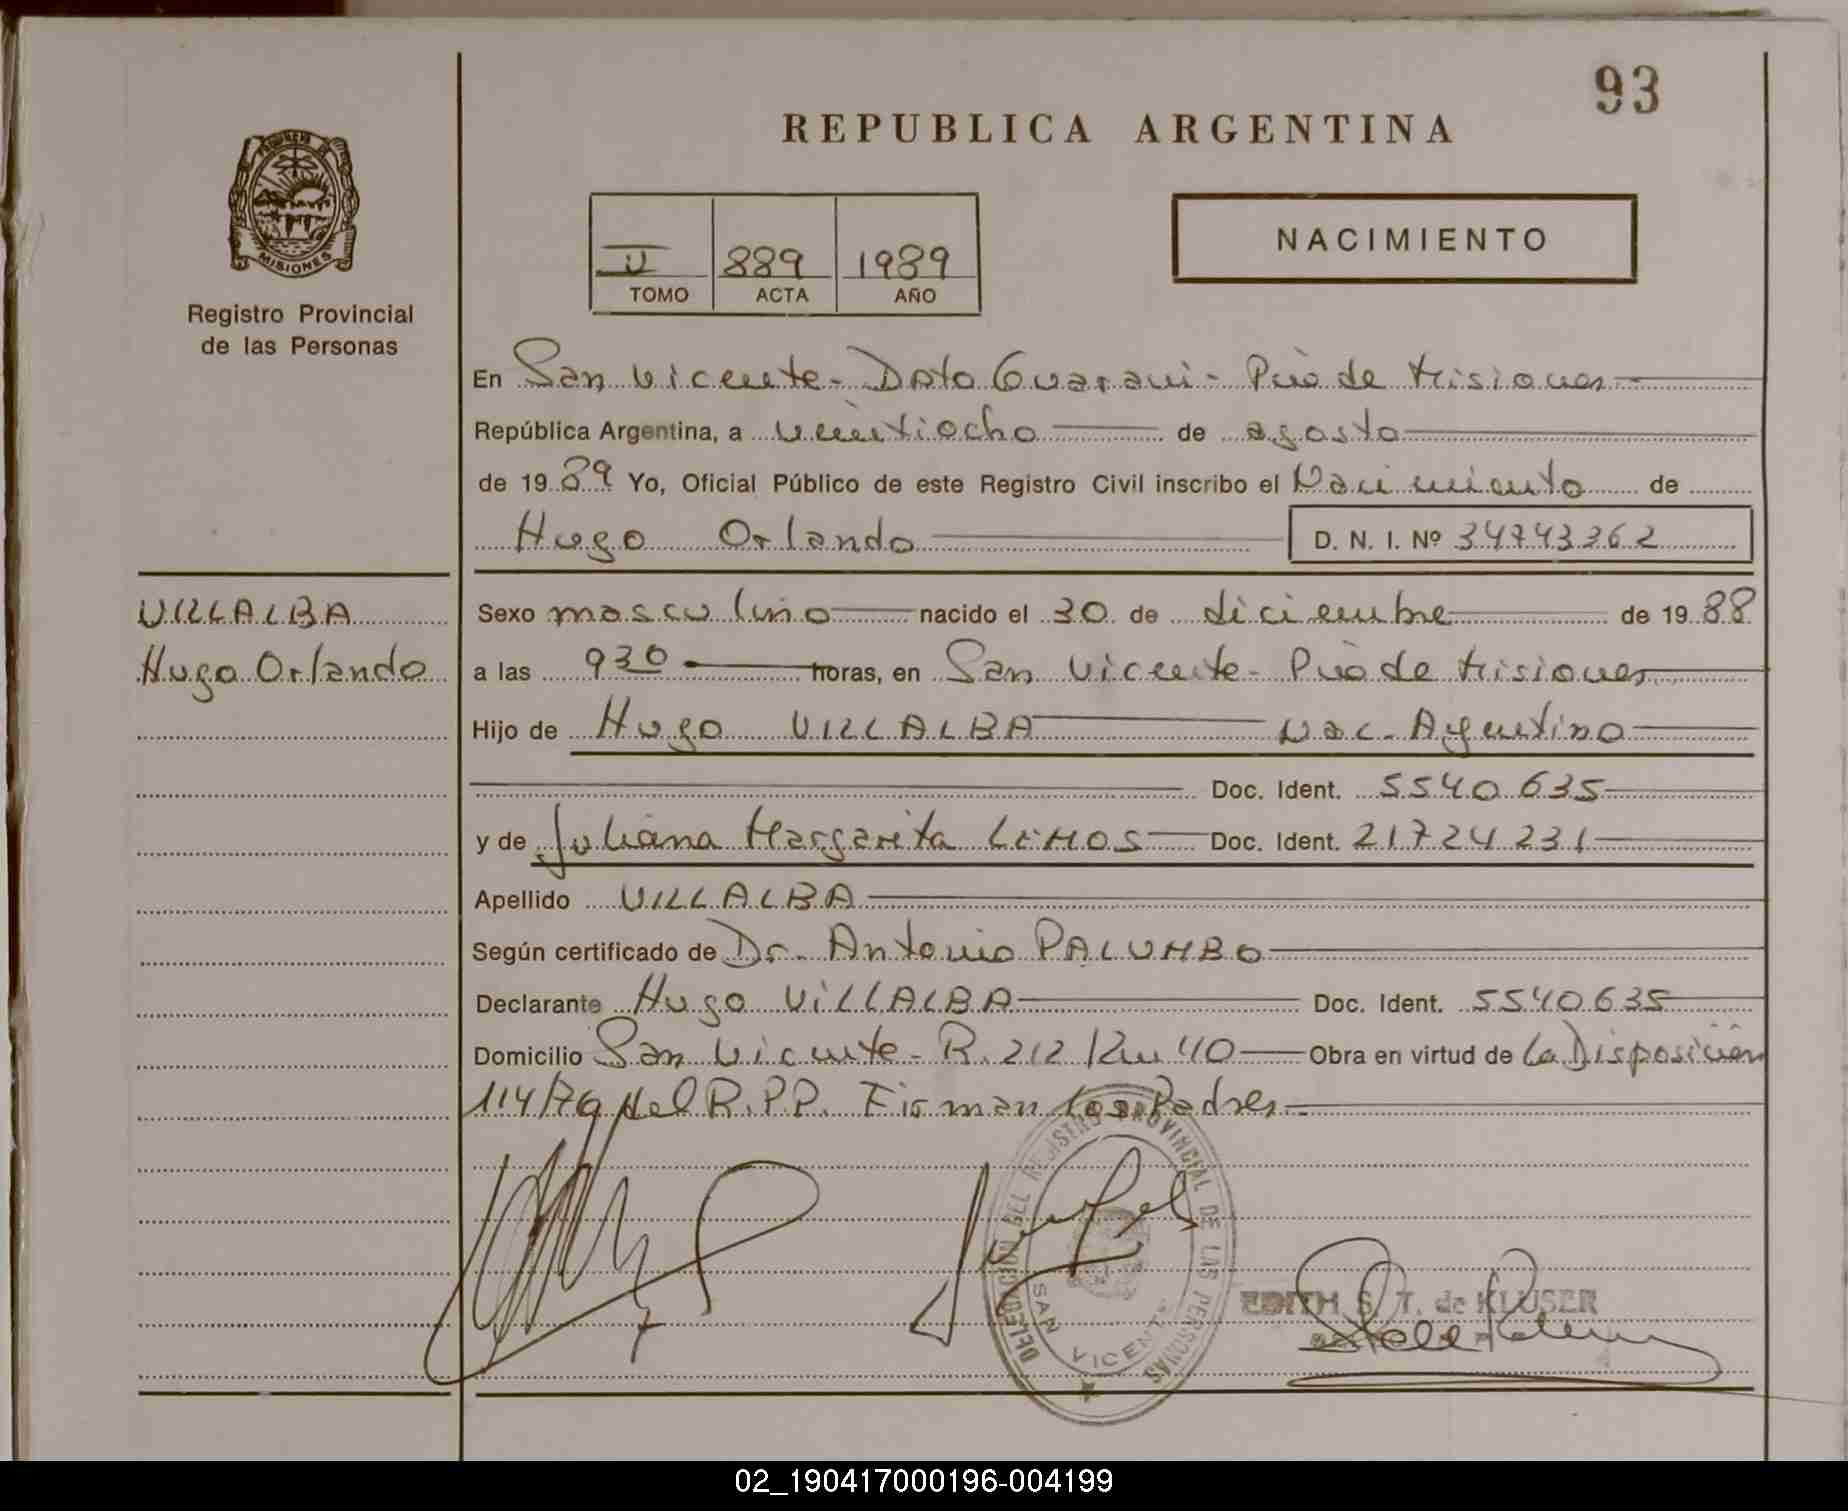 93
REPUBLICA ARGENTINA
MISIONES
Registro Provincial
de las Personas
II 889 1989
TOMO ACTA AÑO
NACIMIENTO
En San Vicente - Dpto Guarani - Pcia de Misiones
República Argentina, a veintiocho de agosto
de 1989 Yo, Oficial Público de este Registro Civil inscribo el Nacimiento de
Hugo Orlando D. N. I. Nº 34743362
VILLALBA
Hugo Orlando
Sexo masculino nacido el 30 de diciembre de 1988
a las 930 horas, en San Vicente - Pcia de Misiones
Hijo de Hugo VILLALBA Nac. Argentino
Doc. Ident. 5540635
y de Juliana Margarita LEMOS Doc. Ident. 21724231
Apellido VILLALBA
Según certificado de Dr. Antonio PALUMBO
Declarante Hugo VILLALBA Doc. Ident. 5540635
Domicilio San Vicente - R. 212 Km 40 Obra en virtud de la Disposición
114/79 del R.P.P. Firman los Padres
DELEGACION DEL REGISTRO PROVINCIAL DE LAS PERSONAS
SAN VICENTE
EDITH S. T. de KLUSER
02_190417000196-004199